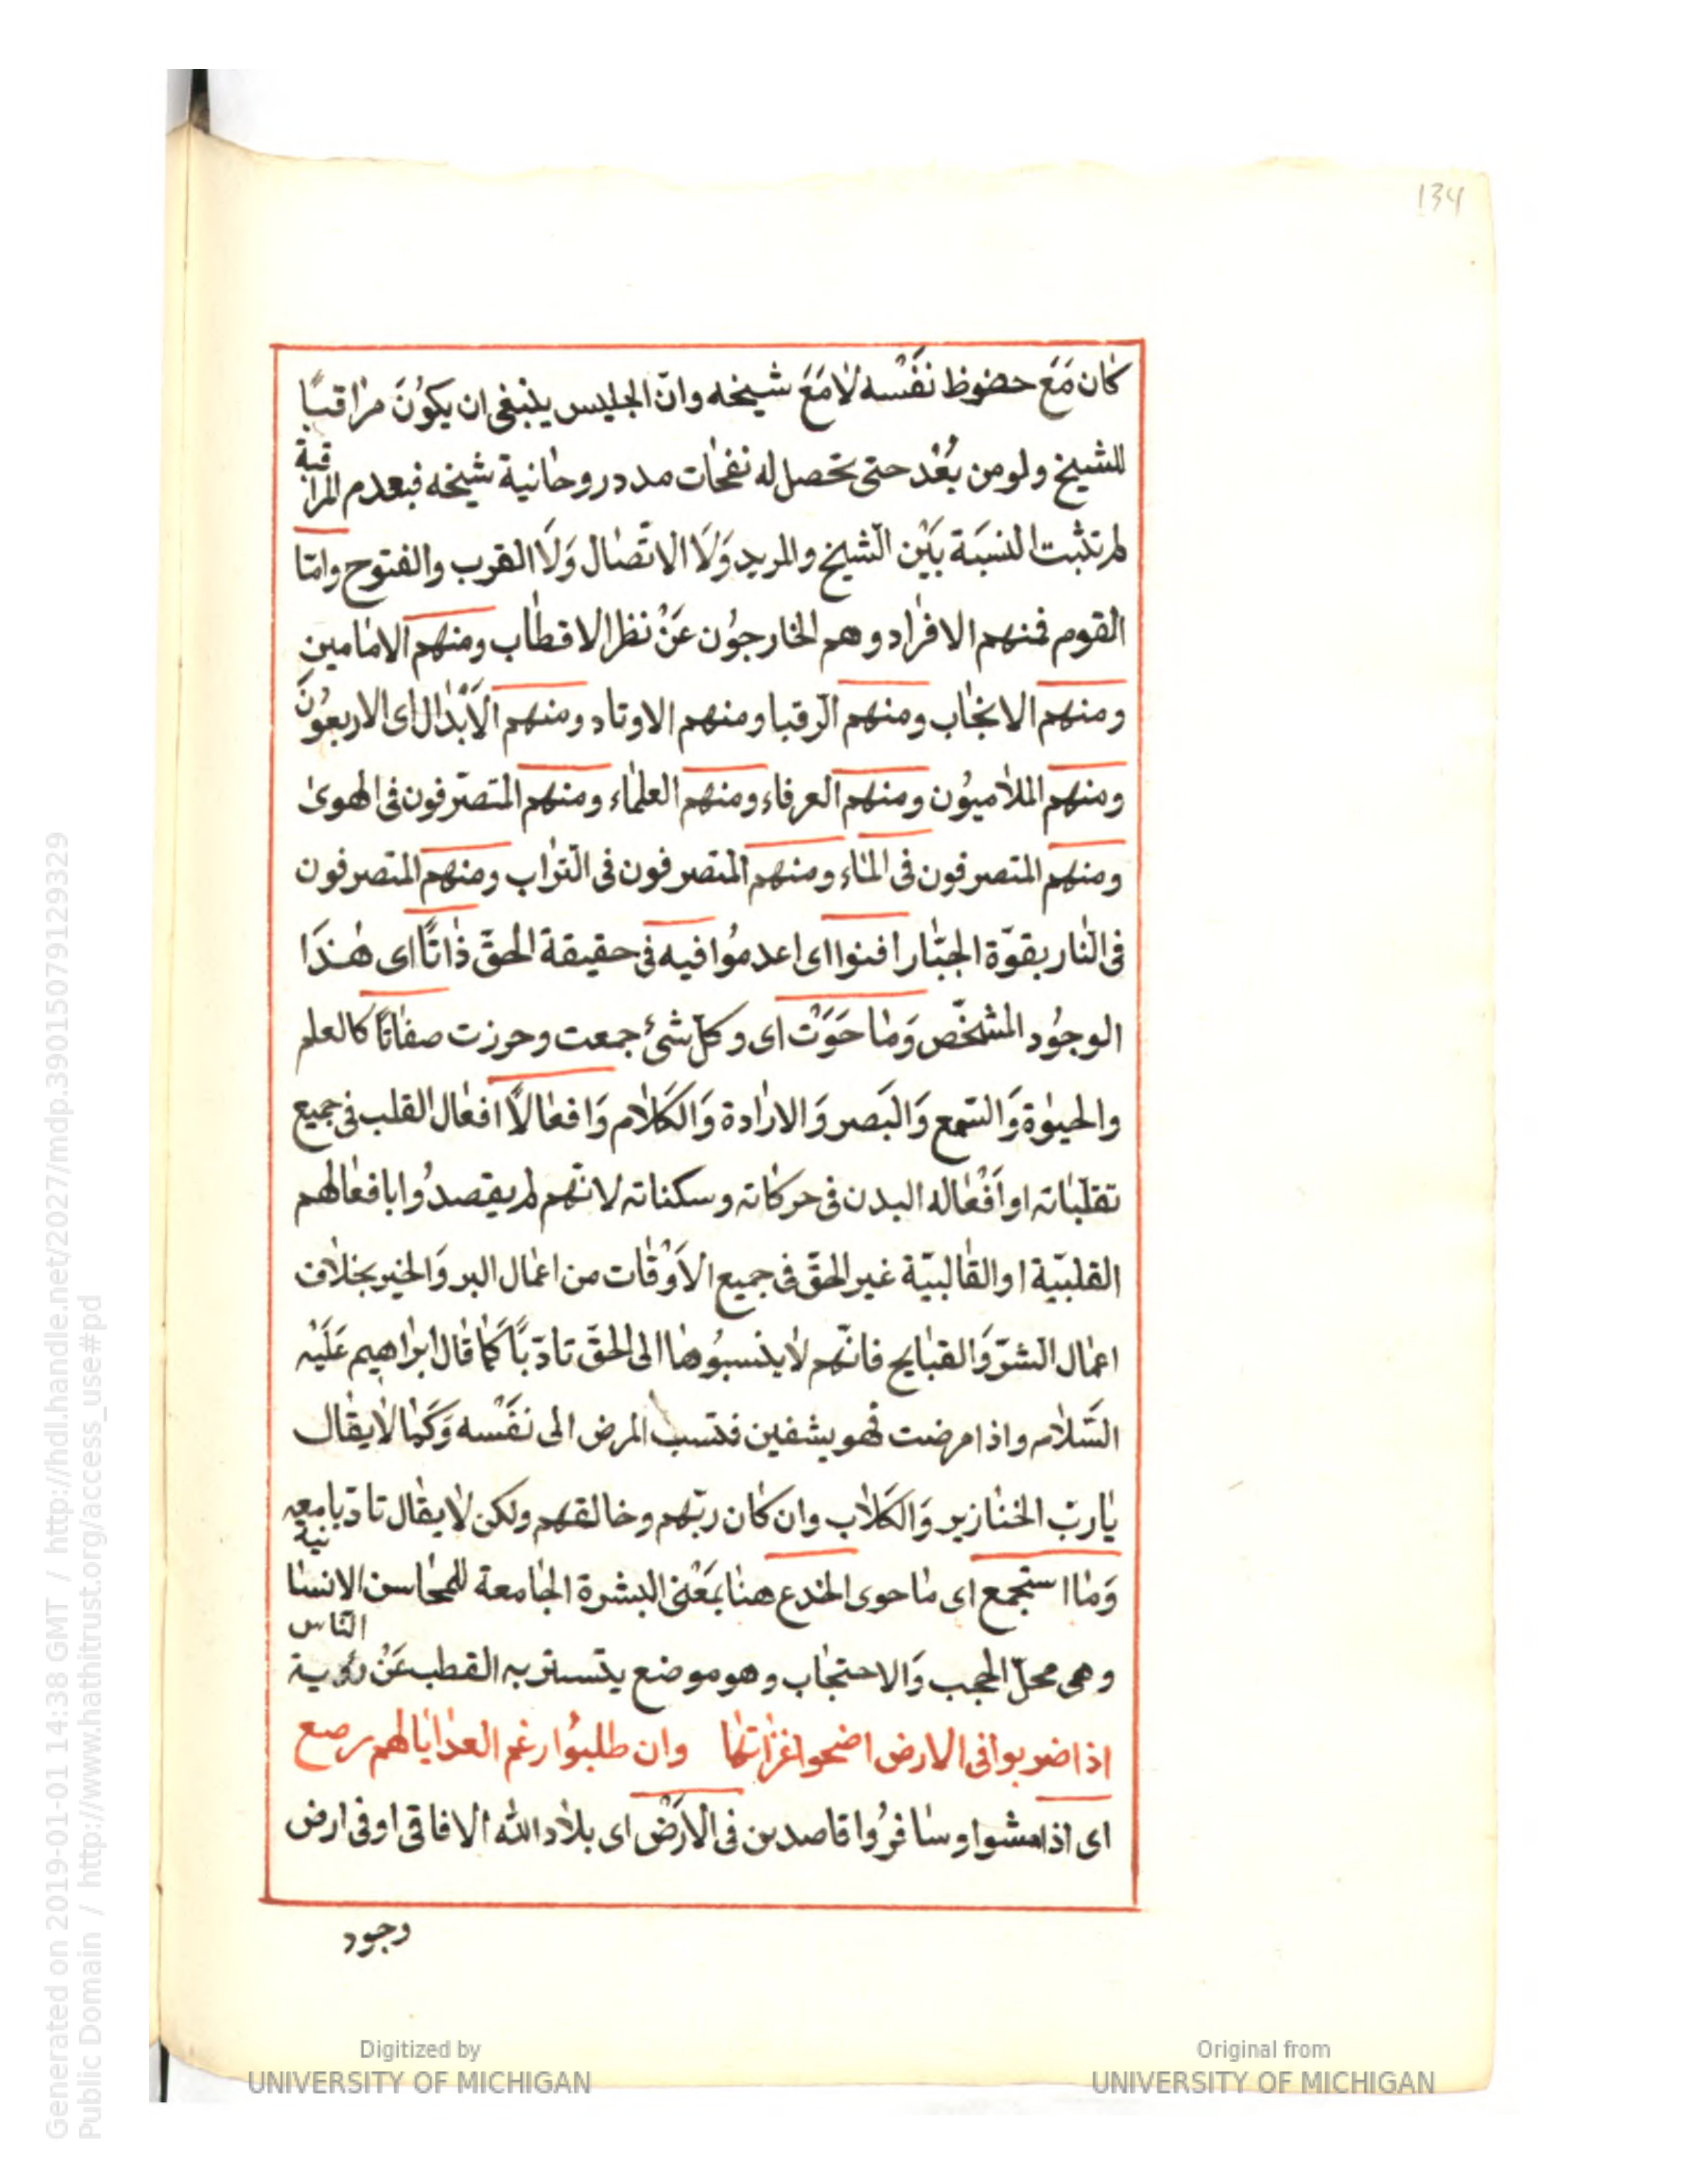 134
كان مَعَ حضوظ نفَسْه لامَعَ شيخه وانّ الجليس ينبغى ان يكوُنَ مراقبًا
للشيخ ولو من بُعْد حتى تحصل له نفحات مدد روحانية شيخه فبعدم المراقبة
لم تثبت النسبَة بَيْن الشيخ والمريد وَلَا الاتّصال وَلَا القرب والفتوح وامّا
القوم فمنهم الافراد وهم الخارجوُن عَنْ نظر الاقطاب ومنهم الامامين
ومنهم الانجاب ومنهم الرقبا ومنهم الاوتاد ومنهم الاَبْدال اى الاربعوُنَ
ومنهم الملاميوُن ومنهم العرفاء ومنهم العلماء ومنهم المتصرّفون فى الهوى
ومنهم المتصرفون فى الماء ومنهم المتصرفون فى التراب ومنهم المتصرفون
فى النار بقوّة الجبّار افنوا اى اعدموُا فيه فى حقيقة الحقّ ذاتًا اى هٰذَا
الوجوُد المشخّص وَما حَوَتْ اى وكلّ شئ جمعت وحرزت صفاتًا كالعلم
والحيوٰة وَالسّمع وَالبَصر وَالارادة وَالكَلام وَافعالاً افعال القلب فى جميع
تقلّباته او اَفْعاله البدن فى حركاته وسكناته لانّهم لم يقصدوُا بافعالهم
القلبيّة او القالبيّة غير الحقّ فى جميع الاَوْقات من اعمال البر وَالخير بخلاف
اعمال الشرّ وَالقبايح فانّهم لا ينسبوُها الى الحقّ تادّبًا كَما قال ابراهيم عَلَيْه
السّلام واذا مرضت فهو يشفين فنسب المرض الى نفَسْه وَكَما لا يقال
يارب الخنازير وَالكَلاب وان كان ربّهم وخالقهم ولكن لا يقال تادّبا معه
وَما استجمع اى ما حوى الخدع هنا بمَعْنىَ البشرة الجامعة للمحاسن الانسانية
وهى محلّ الحجب وَالاحتجاب وهو موضع يتستر به القطب عَنْ رؤية الناس
اذا ضربوا فى الارض اضحوا غزاتها وان طلبوُا رغم العدايا لهم رصع
اى اذا مشوا وسافرُوا قاصدين فى الاَرْض اى بلاد الله الافاقى او فى ارض
وجود
Digitized by
UNIVERSITY OF MICHIGAN
Original from
UNIVERSITY OF MICHIGAN
Generated on 2019-01-01 14:38 GMT / http://hdl.handle.net/2027/mdp.39015079129329
Public Domain / http://www.hathitrust.org/access_use#pd